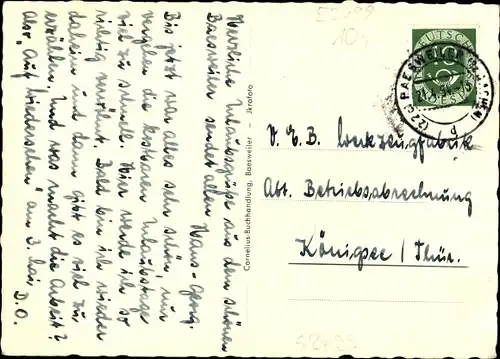 Herzliche Urlaubsgrüße aus dem schönen
Baesweiler sendet allen Hans-Georg.
Bis jetzt war alles sehr schön, nur
vergehen die kostbaren Urlaubstage
viel zu schnell. Hier werde ich so
richtig verwöhnt. Bald bin ich wieder
daheim und dann gibt es viel zu
erzählen. Und was macht die Arbeit?
Also "Auf Wiedersehen" am 3. Mai,
D.O.
Cornelius-Buchhandlung, Baesweiler – Jkrafoto
52499
10,
DEUTSCHE
(22c) BAESWEILER (Kr. AACHEN)
d
V.E.B. Werkzeugfabrik
Abt. Betriebsabrechnung
Königsee / Thür.
52499